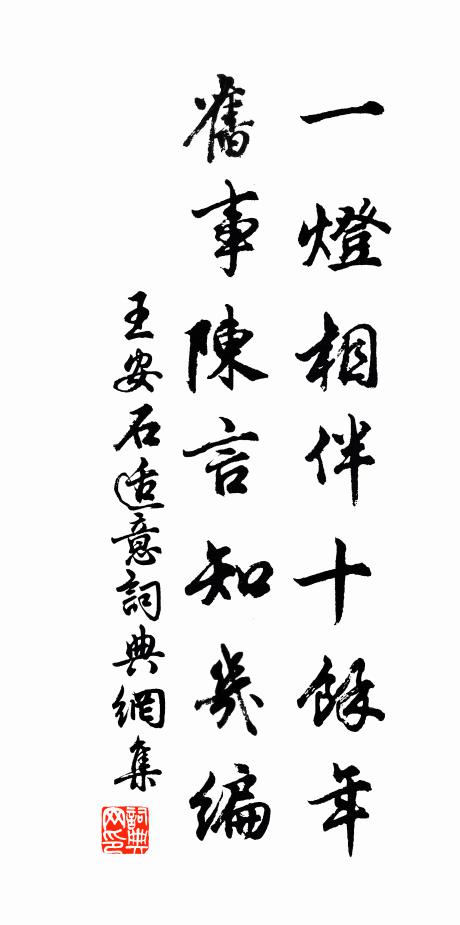 一燈相伴十餘年
舊事陳言知幾編
王安石适意詞典網集
詞典网印